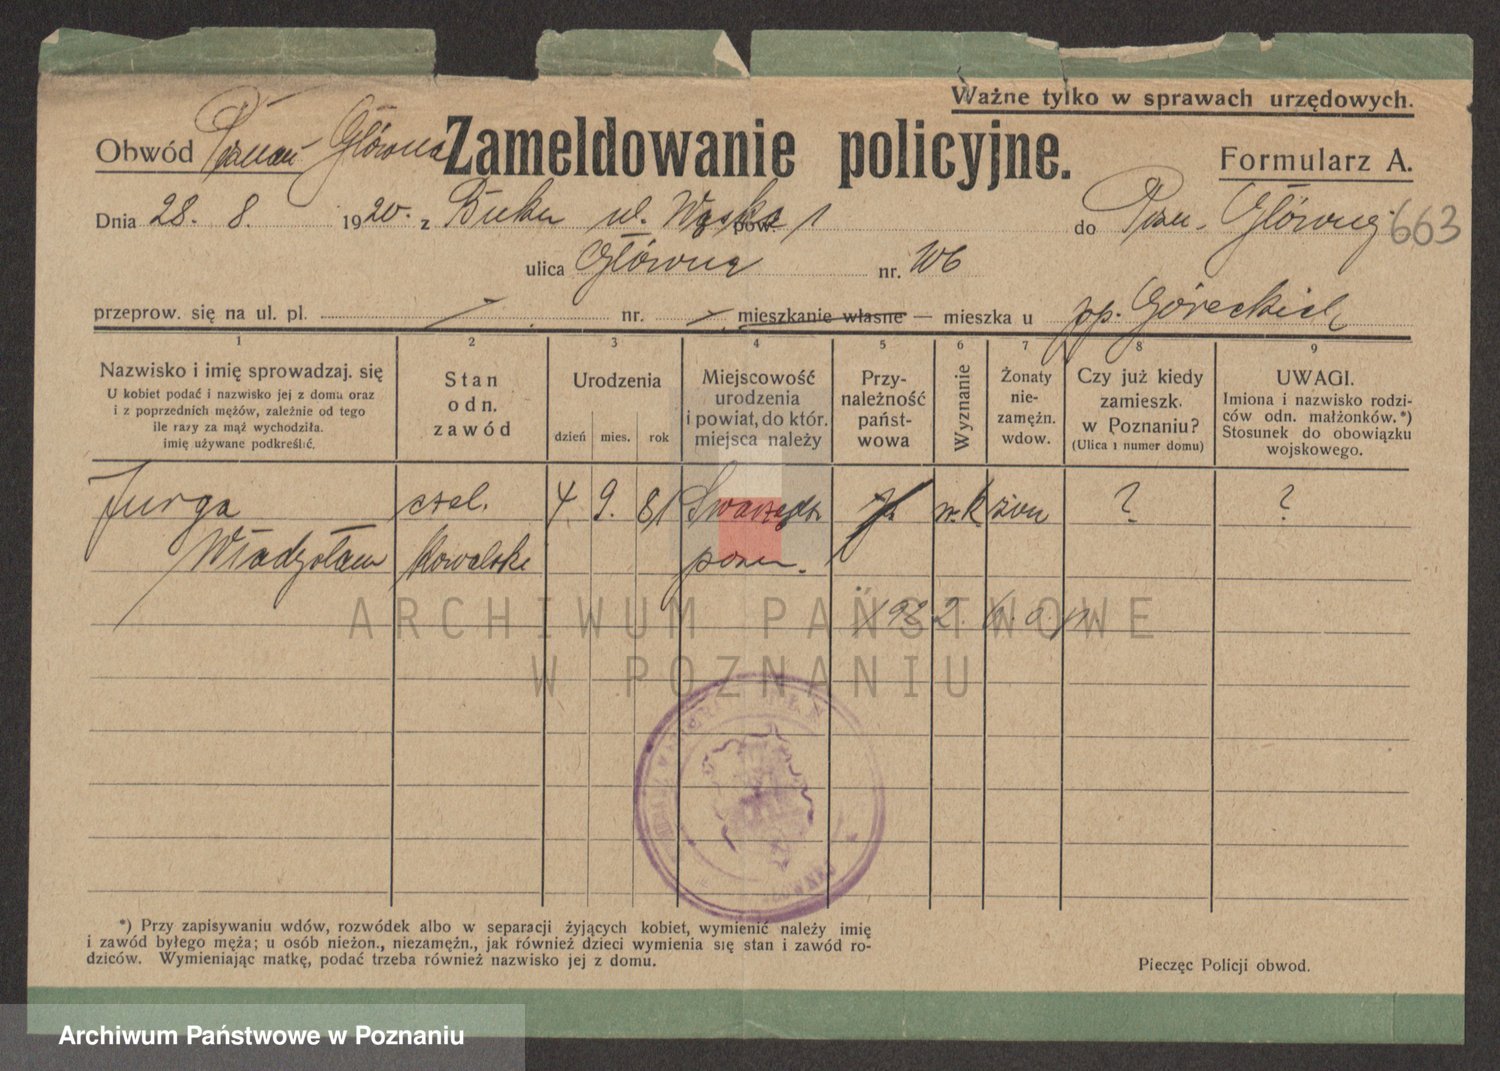 Ważne tylko w sprawach urzędowych.
Obwód Poznań Główna Zameldowanie policyjne. Formularz A.
Dnia 28. 8. 1920. z Buku ul. Wąska pow. 1 do Pozn. Główny 663
ulica Główna nr. 106
przeprow. się na ul. pl. — nr. — mieszkanie własne — mieszka u pp. Góreckich
1 2 3 4 5 6 7 8 9
Nazwisko i imię sprowadzaj. się
U kobiet podać i nazwisko jej z domu oraz
i z poprzednich mężów, zależnie od tego
ile razy za mąż wychodziła.
imię używane podkreślić.
Stan
odn.
zawód
Urodzenia
dzień mies. rok
Miejscowość
urodzenia
i powiat, do któr.
miejsca należy
Przy-
należność
państ-
wowa
Wyznanie
Żonaty
nie-
zamężn.
wdow.
Czy już kiedy
zamieszk.
w Poznaniu?
(Ulica i numer domu)
UWAGI.
Imiona i nazwisko rodzi-
ców odn. małżonków.*)
Stosunek do obowiązku
wojskowego.
Jurga czel. 4 9. 81 Swarzędz r. k żon ? ?
Władysław kowalski pozn.
ARCHIWUM PAŃSTWOWE
W POZNANIU
*) Przy zapisywaniu wdów, rozwódek albo w separacji żyjących kobiet, wymienić należy imię
i zawód byłego męża; u osób nieżon., niezamężn., jak również dzieci wymienia się stan i zawód ro-
dziców. Wymieniając matkę, podać trzeba również nazwisko jej z domu.
Pieczęc Policji obwod.
Archiwum Państwowe w Poznaniu